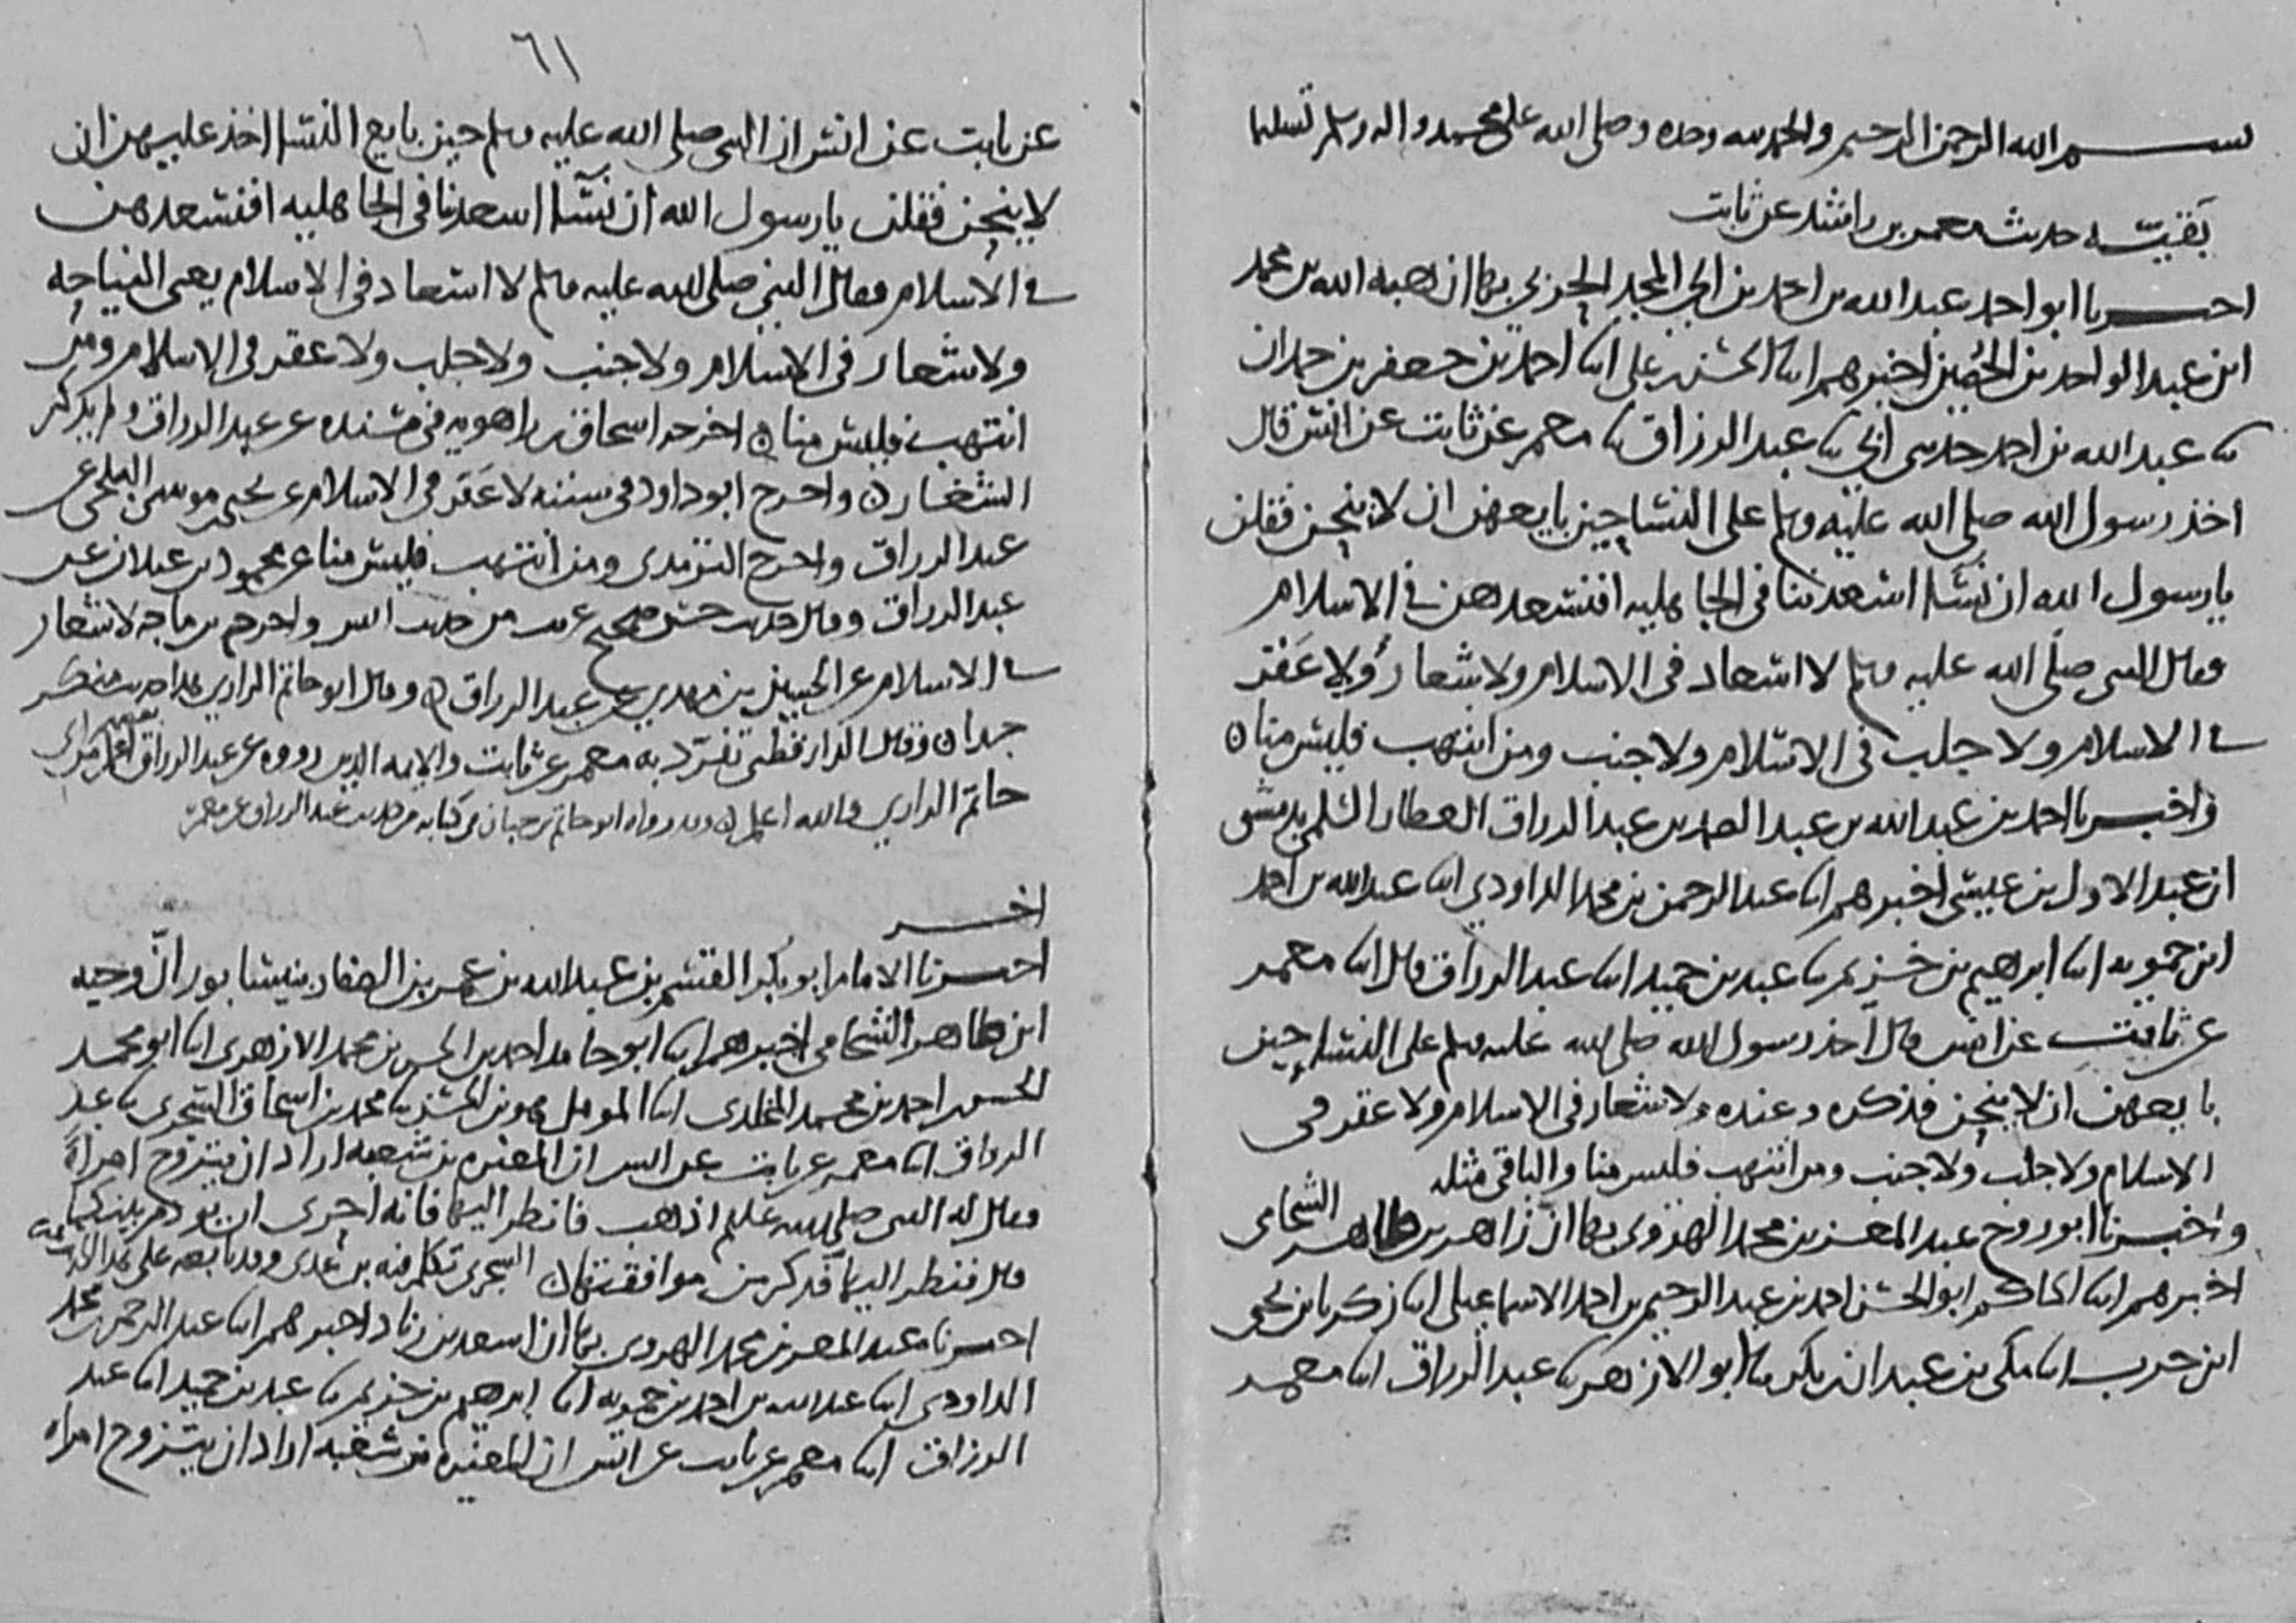 بسم الله الرحمن الرحيم والحمد لله وحده وصلى الله على محمد واله وسلم تسليما
بقية حديث معمر بن راشد عن ثابت
اخبرنا ابو احمد عبد الله بن احمد بن ابي المجد الحربي بها ان هبة الله بن محمد
ابن عبد الواحد بن الحصين اخبرهم ابنا الحسن بن علي ابنا احمد بن جعفر بن حمدان
ثنا عبد الله بن احمد حدثني ابي ثنا عبد الرزاق ثنا معمر عن ثابت عن انس قال
اخذ رسول الله صلى الله عليه وسلم على النسا حين بايعهن ان لا ينحن فقلن
يا رسول الله ان نسا اسعدننا في الجاهلية افنسعدهن في الاسلام
فقال النبي صلى الله عليه وسلم لا اسعاد في الاسلام ولا شغار ولا عقر
في الاسلام ولا جلب في الاسلام ولا جنب ومن انتهب فليس منا ن
واخبرنا احمد بن عبد الله بن عبد الصمد بن عبد الرزاق العطار السلمي بدمشق
ان عبد الاول بن عيسى اخبرهم ابنا عبد الرحمن بن محمد الداودي ابنا عبد الله بن احمد
ابن حمويه ابنا ابرهيم بن خزيم ثنا عبد بن حميد ابنا عبد الرزاق قال ابنا معمر
عن ثابت عن انس قال اخذ رسول الله صلى الله عليه وسلم على النسا حين
بايعهن ان لا ينحن فذكره وعنده ولا شغار في الاسلام ولا عقر في
الاسلام ولا جلب ولا جنب ومن انتهب فليس منا والباقي مثله
واخبرنا ابو روح عبد المعز بن محمد الهروي بها ان زاهر بن طاهر الشحامي
اخبرهم ابنا الحاكم ابو الحسن احمد بن عبد الرحيم بن احمد الاسماعيلي ابنا زكريا بن يحيى
ابن حرب ابنا مكي بن عبدان بكر ثنا ابو الازهر ثنا عبد الرزاق ابنا معمر
٦١
عن ثابت عن انس ان النبي صلى الله عليه وسلم حين بايع النسا اخذ عليهن ان
لا ينحن فقلن يا رسول الله ان نسآ اسعدننا في الجاهلية افنسعدهن
في الاسلام فقال النبي صلى الله عليه وسلم لا اسعاد في الاسلام يعني النياحة
ولا شغار في الاسلام ولا جنب ولا جلب ولا عقر في الاسلام ومن
انتهب فليس منا ن اخرجه اسحاق بن راهويه في مسنده عن عبد الرزاق ولم يذكر
الشغار ن واخرج ابو داود في سننه لا عقر في الاسلام عن يحيى بن موسى البلخي عن
عبد الرزاق واخرج الترمذي ومن انتهب فليس منا عن محمود بن غيلان عن
عبد الرزاق وقال حديث حسن صحيح غريب من حديث انس واخرج بن ماجه لا شغار
في الاسلام عن الحسين بن مهدي عن عبد الرزاق ن وقال ابو حاتم الرازي هذا حديث منكر
جدا ن وقال الدارقطني تفرد به معمر عن ثابت والايمة الذين رووه عن عبد الرزاق
حاتم الرازي والله اعلم ن وقد رواه ابو حاتم بن حبان في كتابه من حديث عبد الرزاق عن معمر
اخر
اخبرنا الامام ابو بكر القسم بن عبد الله بن عمر بن الصفار بنيسابور ان وجيه
ابن طاهر الشحامي اخبرهم ابنا ابو حامد احمد بن الحسن بن محمد الازهري ابنا ابو محمد
الحسن بن احمد بن محمد المخلدي ابنا المومل بن الحسن ثنا محمد بن اسحاق السجزي ثنا عبد
الرزاق ابنا معمر عن ثابت عن انس ان المغيره بن شعبه اراد ان يتزوج امراة
فقال له النبي صلى الله عليه وسلم اذهب فانظر اليها فانه احرى ان يودم بينكما
قال فنظر اليها فذكر من موافقتها ن السجزي تكلم فيه بن عدي وقد تابعه على هذا
اخبرنا عبد المعز بن محمد الهروي بها ان اسعد بن زياد اخبرهم ابنا عبد الرحمن بن محمد
الداودي ابنا عبد الله بن احمد بن حمويه ابنا ابرهيم بن خزيم ثنا عبد بن حميد ابنا عبد
الرزاق ابنا معمر عن ثابت عن انس ان المغيره بن شعبه اراد ان يتزوج امراه